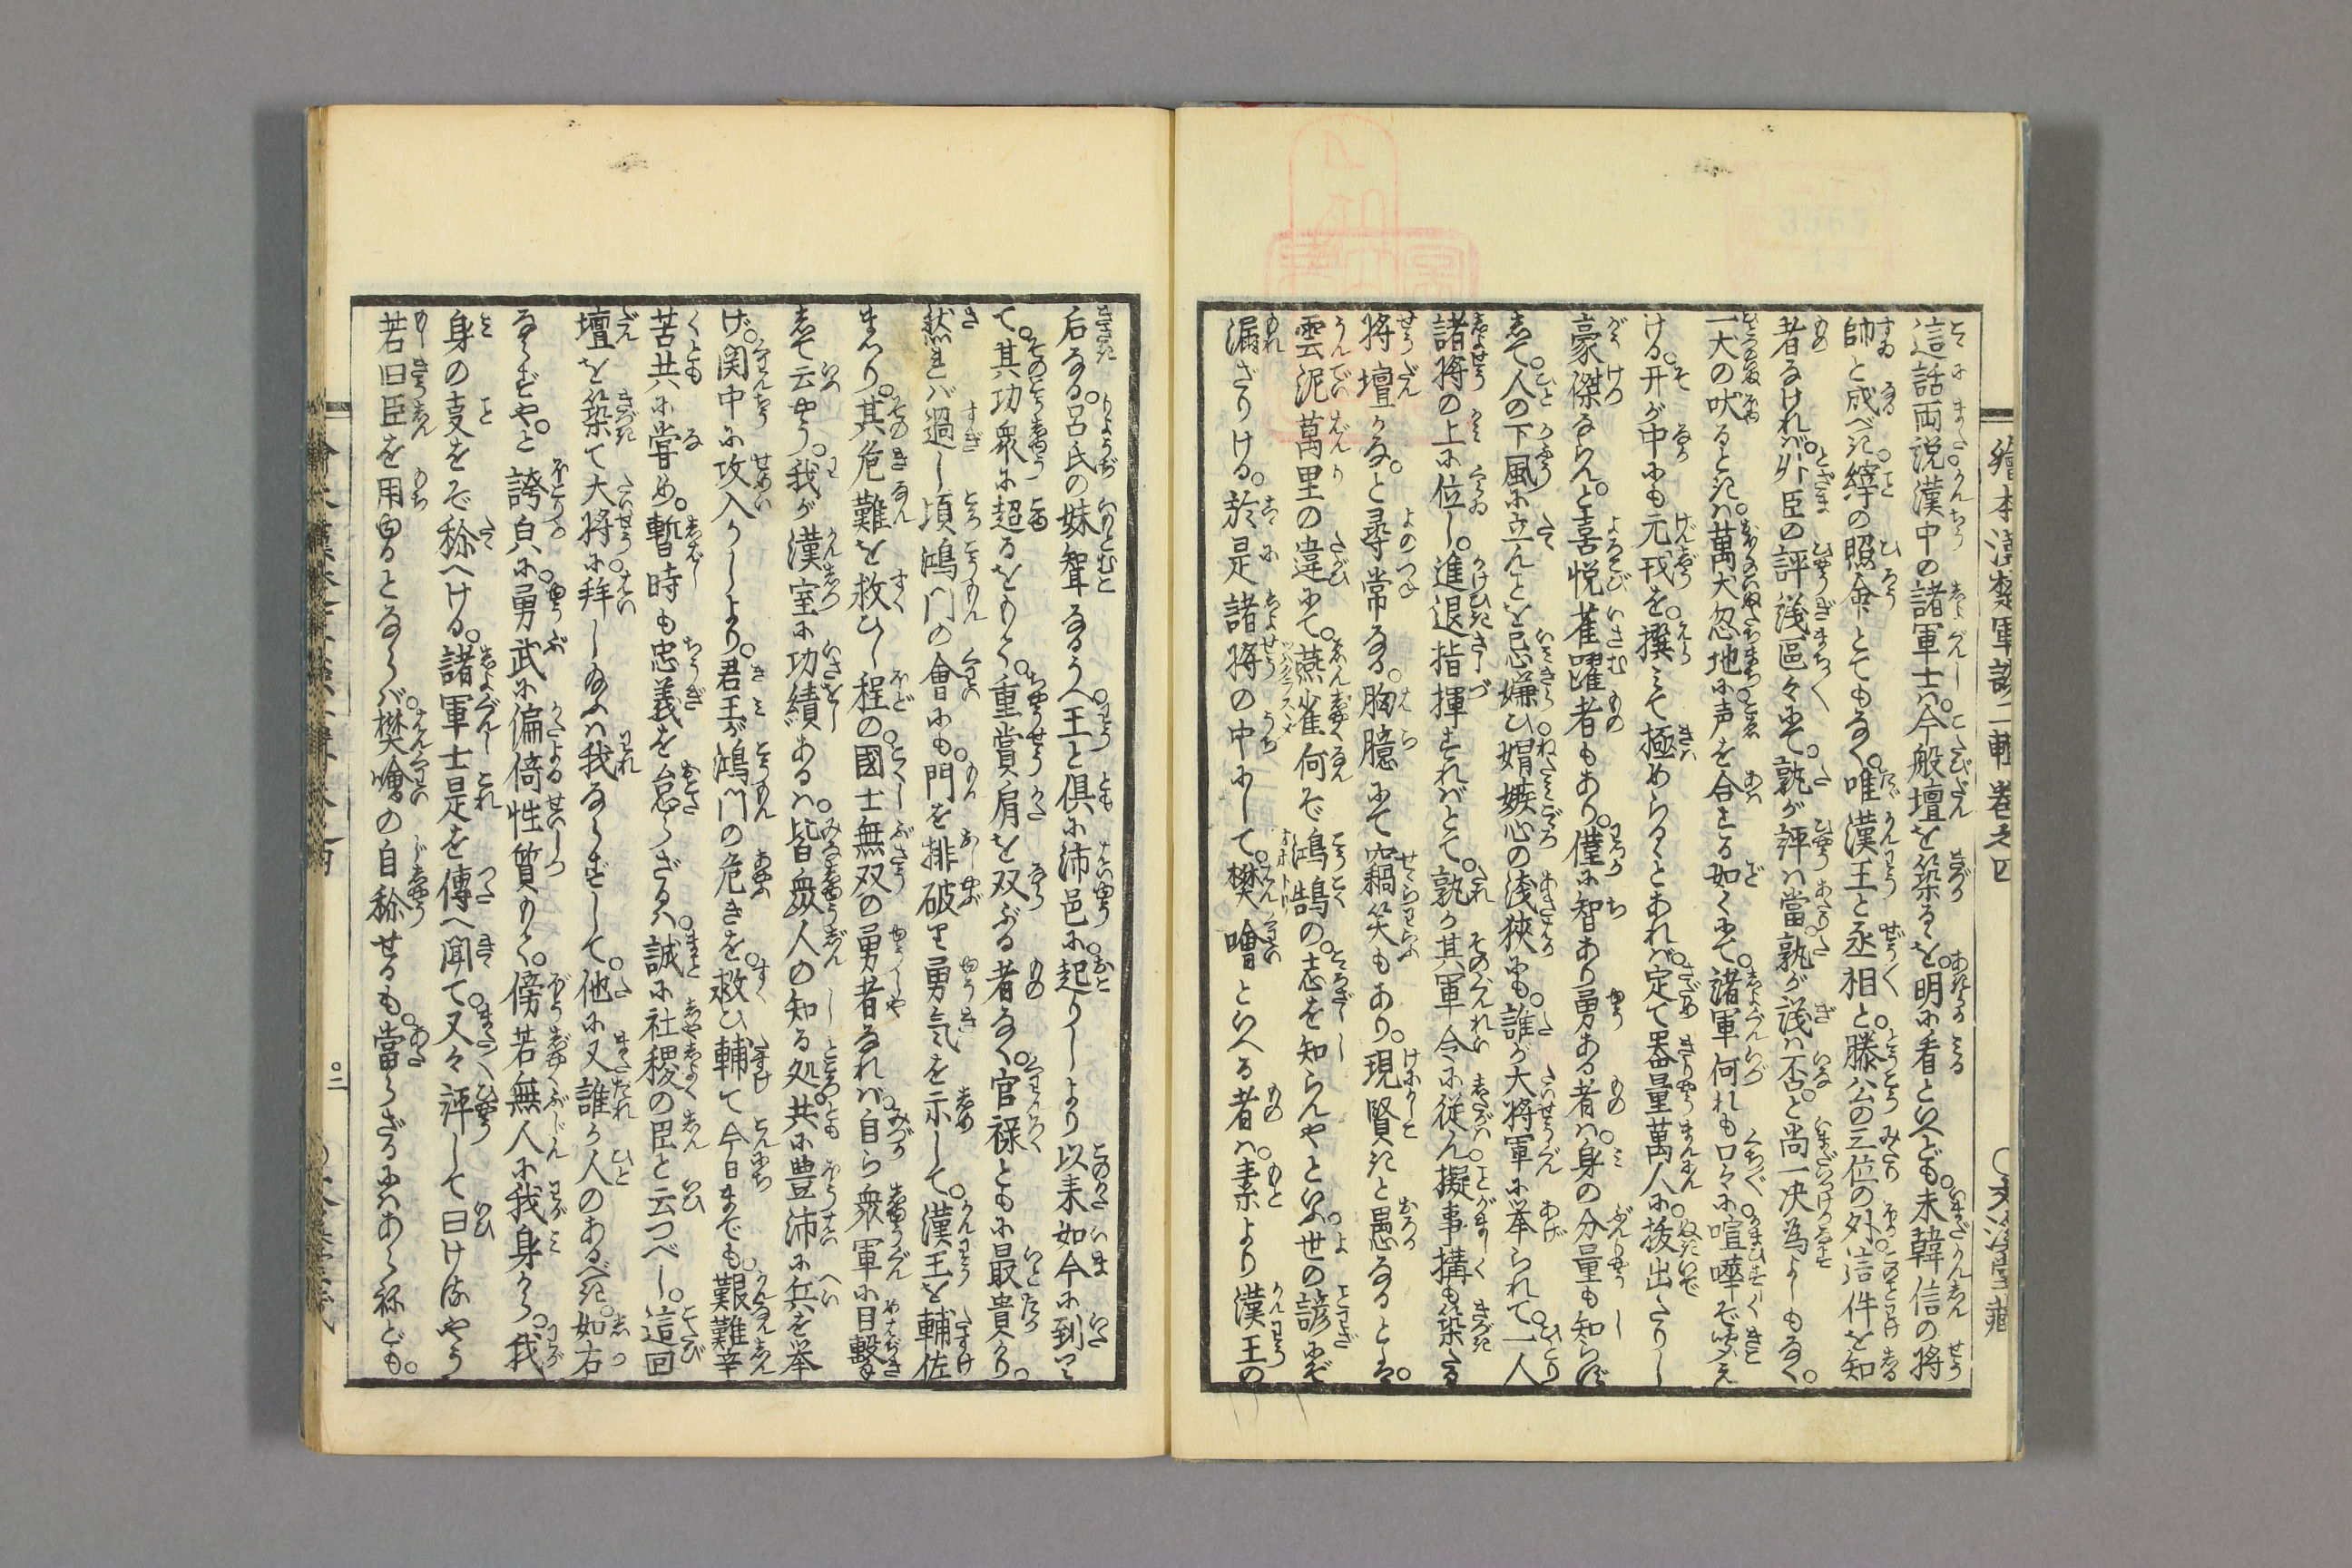 這話両説漢中の諸軍士ハ。今般壇を築るを。明に看といへども。未韓信の将
帥と成べき。縡の照会とてもなく。唯漢王と丞相と。滕公の三位の外。這件を知
者なけれバ。外臣の評議區々にて。孰が評ハ當。孰が議ハ否と。尚一决為よしもなく。
一犬の吠るときハ。萬犬忽地に声を合する如くにて。諸軍何れも口々に。喧嘩ぞ聞え
ける。开が中にも元戎を。撰みて極めらるゝとあれバ。定て器量萬人に。抜出たりし
豪傑ならん。と喜悦雀躍者もあり。僅に智あり勇ある者ハ。身の分量も知らず
して。人の下風に立んことを忌嫌ひ。媢嫉心の浅狹にも。誰か大将軍に挙られて。一人
諸将の上に位し。進退指揮すれバとて。孰か其軍令に従ん。擬事搆も築たる
将壇かな。と尋常なる。胸臆にて竊笑もあり。現賢きと愚なるとハ。
雲泥萬里の違にて。燕雀何ぞ鴻鵠の。志を知らんやといふ。世の諺にぞ
漏ざりける。於是諸将の中にして。樊噲といへる者ハ。素より漢王の
后なる。呂氏の妹聟なるうへ。王と倶に沛邑に。起りしより以来如今に到り
て。其功衆に超るをもて。重賞肩を双ぶる者なく。官禄ともに最貴かり。
然れバ過し頃鴻門の會にも。門を排破り勇気を示して。漢王を輔佐
まゐり。其危難を救ひし程の。國士無双の勇者なれバ。自ら衆軍に目擊
して云やう。我が漢室に功績あるハ。皆衆人の知る処。共に豊沛に兵を挙
げ。関中に攻入りしより。君王が鴻門の危きを。救ひ輔て今日までも。艱難辛
苦共に甞め。暫時も忠義を怠らざるハ。誠に社稷の臣と云つべし。這回
壇を築て大将に。拜し給ふハ我ならずして。他に又誰か人のあるべき。如右
ならずや。と誇㒵に。勇武に偏倚性質もて。傍若無人に我身から。我
身の㕝をぞ称へける。諸軍士是を傳へ聞て。又々評して曰けるやう
若旧臣を用るとならバ。樊噲の自称せるも。當らざるにハあらねども。
繪本漢楚軍談二輯巻之四
○文渓堂藏
○二